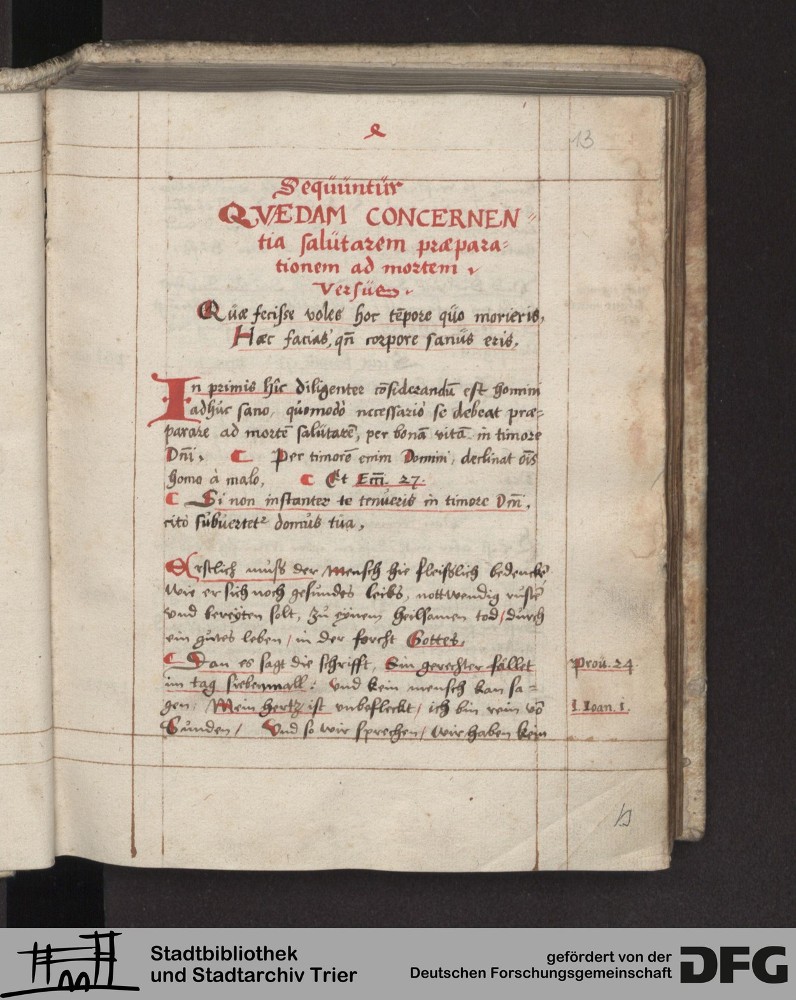 e
13
Sequuntur
QVÆDAM CONCERNEN=
tia salutarem præpara=
tionem ad mortem.
Versus.
Quæ fecisse voles hoc tẽpore quo morieris,
Hæc facias, qñ corpore sanus eris.
In primis hîc diligenter cõsiderandũ est homini
adhúc sano, quomodò necessariò se debeat præ=
parare ad mortẽ salutarẽ, per bonã vitã in timore
Dñi. Per timorẽ enim Domini, declinat oĩs
homo à malo, Et Eccl̃. 27.
Si non instanter te tenueris in timore Dñi,
citò subuertet² domus tua,
Erstlich muss der Mensch hie fleissich bedencke͂
wie er sich noch gesundes leibs, nottwendig rüste͂
vnd bereyten solt, zu eÿnem heilsamen tod, durch
ein gutes leben, in der forcht Gottes.
Dan es sagt die schrifft, Ein gerechter fallet
im tag siebenmall: Vnd kein mensch kan sa=
gen, Mein hertz ist vnbefleckt, ich bin rein võ
Sunden, Vnd so wir sprechen, wir haben kein
Prou. 24
1. Ioan. 1.
Stadtbibliothek
und Stadtarchiv Trier
gefördert von der
Deutschen Forschungsgemeinschaft
DFG